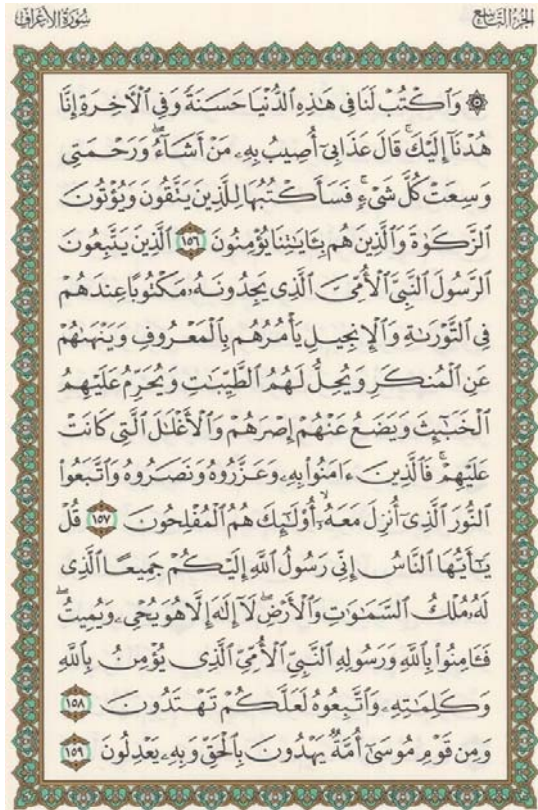 الجزء التاسع
سورة الأعراف
۞ وَٱكۡتُبۡ لَنَا فِي هَٰذِهِ ٱلدُّنۡيَا حَسَنَةٗ وَفِي ٱلۡأٓخِرَةِ إِنَّا
هُدۡنَآ إِلَيۡكَۚ قَالَ عَذَابِيٓ أُصِيبُ بِهِۦ مَنۡ أَشَآءُۖ وَرَحۡمَتِي
وَسِعَتۡ كُلَّ شَيۡءٖۚ فَسَأَكۡتُبُهَا لِلَّذِينَ يَتَّقُونَ وَيُؤۡتُونَ
ٱلزَّكَوٰةَ وَٱلَّذِينَ هُم بِـَٔايَٰتِنَا يُؤۡمِنُونَ ١٥٦ ٱلَّذِينَ يَتَّبِعُونَ
ٱلرَّسُولَ ٱلنَّبِيَّ ٱلۡأُمِّيَّ ٱلَّذِي يَجِدُونَهُۥ مَكۡتُوبًا عِندَهُمۡ
فِي ٱلتَّوۡرَىٰةِ وَٱلۡإِنجِيلِ يَأۡمُرُهُم بِٱلۡمَعۡرُوفِ وَيَنۡهَىٰهُمۡ
عَنِ ٱلۡمُنكَرِ وَيُحِلُّ لَهُمُ ٱلطَّيِّبَٰتِ وَيُحَرِّمُ عَلَيۡهِمُ
ٱلۡخَبَٰٓئِثَ وَيَضَعُ عَنۡهُمۡ إِصۡرَهُمۡ وَٱلۡأَغۡلَٰلَ ٱلَّتِي كَانَتۡ
عَلَيۡهِمۡۚ فَٱلَّذِينَ ءَامَنُواْ بِهِۦ وَعَزَّرُوهُ وَنَصَرُوهُ وَٱتَّبَعُواْ
ٱلنُّورَ ٱلَّذِيٓ أُنزِلَ مَعَهُۥٓ أُوْلَٰٓئِكَ هُمُ ٱلۡمُفۡلِحُونَ ١٥٧ قُلۡ
يَٰٓأَيُّهَا ٱلنَّاسُ إِنِّي رَسُولُ ٱللَّهِ إِلَيۡكُمۡ جَمِيعًا ٱلَّذِي
لَهُۥ مُلۡكُ ٱلسَّمَٰوَٰتِ وَٱلۡأَرۡضِۖ لَآ إِلَٰهَ إِلَّا هُوَ يُحۡيِۦ وَيُمِيتُۖ
فَـَٔامِنُواْ بِٱللَّهِ وَرَسُولِهِ ٱلنَّبِيِّ ٱلۡأُمِّيِّ ٱلَّذِي يُؤۡمِنُ بِٱللَّهِ
وَكَلِمَٰتِهِۦ وَٱتَّبِعُوهُ لَعَلَّكُمۡ تَهۡتَدُونَ ١٥٨
وَمِن قَوۡمِ مُوسَىٰٓ أُمَّةٞ يَهۡدُونَ بِٱلۡحَقِّ وَبِهِۦ يَعۡدِلُونَ ١٥٩